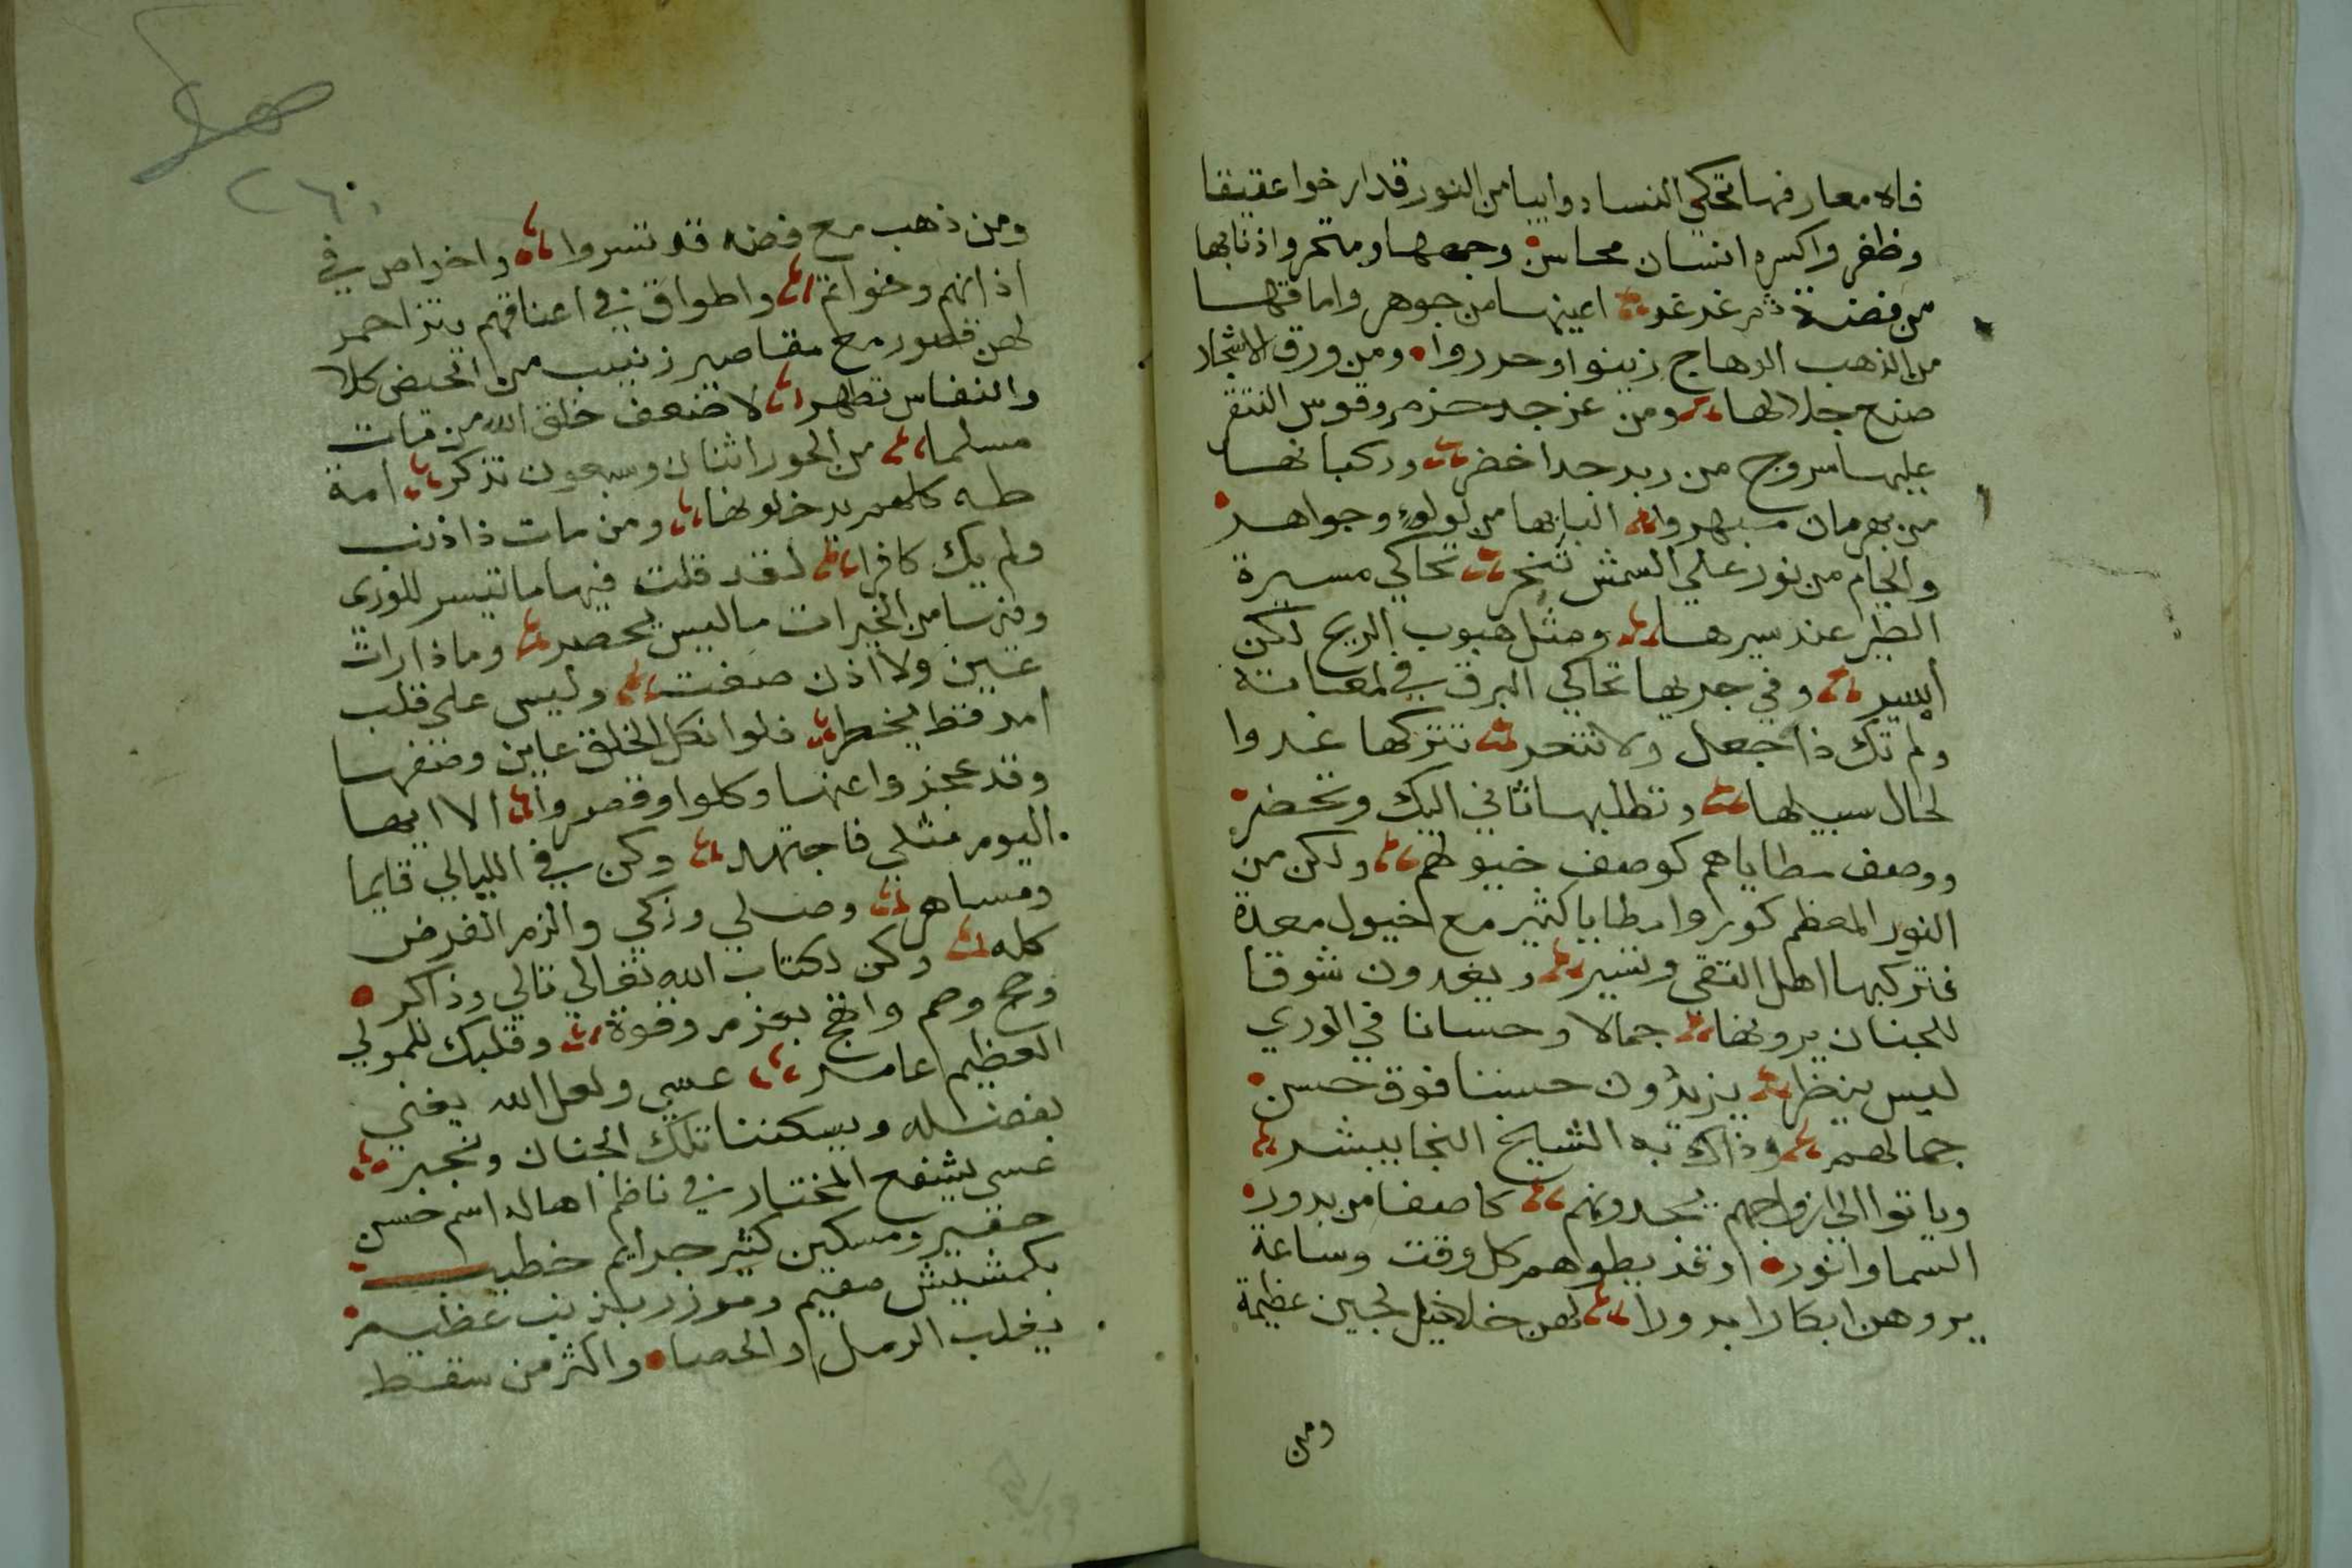 فاه معارفها تحكي النساء وايبا من النور قد ارخوا عقيقا
وظفر واكسره انسان محاسن وجهها وبتمر واذنابها
من فضة ثم غدغد اعينها من جوهر واماقها
من الذهب الوهاج زينوا وحرروا ومن ورق الاشجار
صنع جلالها ومن عزجد حزم وقوس التقر
عليها سروج من زبرجدا خضر وركبانها
من بهرمان مبهروا النابها من لولوء وجواهر
والجام من نور علي الشمش تفخر تحاكي مسيرة
الطير عند سيرها ومثل هبوب الريح لكن
ايسر وفي جريها تحاكي البرق في لمعانه
ولم تك ذا جعل ولا تتعر تتركها غدوا
لحال سبيلها وتطلبها تاتي اليك وتحضر
ووصف مطاياهم كوصف خيولهم ولكن من
النور المعظم كوروا مطايا كثير مع خيول معدة
فتركبها اهل التقي وتسير ويغدون شوقا
للجنان يرونها جمالا وحسانا في الوري
ليس ينظر يزيدون حسنا فوق حسن
جمالهم وذاك به الشيخ النجا يبشر
وياتوا الي ازواجهم يجدونهم كاصفا من بدور
السما وانور وقد يطوهم كل وقت وساعة
يروهن ابكارا بدورا لهن خلاخيل لجين عظيمة
ومن
ومن ذهب مع فضه قد تسروا واخراص في
اذانهم وخواتم واطواق في اعناقهم يتزاحمر
لهن قصور مع مقاصير زنيب من الحيض كلا
والنفاس تطهر لاضعف خلق الله من مات
مسلما من الحور اثنان وسبعون تذكر امة
طه كلهم يدخلونها ومن مات ذا ذنب
ولم يك كافرا لقد قلت فيها ما تيسر للوري
وفيها من الخيرات ما ليس يحصر وماذا رات
عين ولا اذن صغت وليس علي قلب
امد قط يخطر فلو ان كل الخلق عاين وصفها
وقد عجزوا عنها وكلوا وقصروا الا ايها
اليوم مثلي فاجتهد وكن في الليالي قايما
ومساهر وصلي وزكي والزم الفرض
كله وكن لكتاب الله تعالي تالي وذاكر
وحج وصم وانهج بعزم وقوة وقلبك للمولي
العظيم عامر عسي ولعل الله يغني
بفضله ويسكننا تلك الجنان ونجبر
عسي يشفع المختار في ناظم اهاله اسم حسن
حقير ومسكين كثير جرايم خطيب
بكمشيش مقيم وموزر بذنب عظيم
يغلب الرمل والحصاه واكثر من سقط